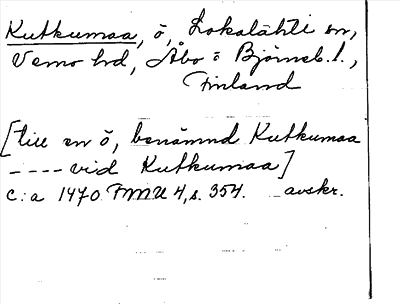 Kutkumaa, ö, Lokalahti sn,
Vemo hd, Åbo o Björneb. l.,
Finland
[till en ö, benämnd Kutkumaa
---- vid Kutkumaa]
c:a 1470 FMU 4, s. 354. avskr.